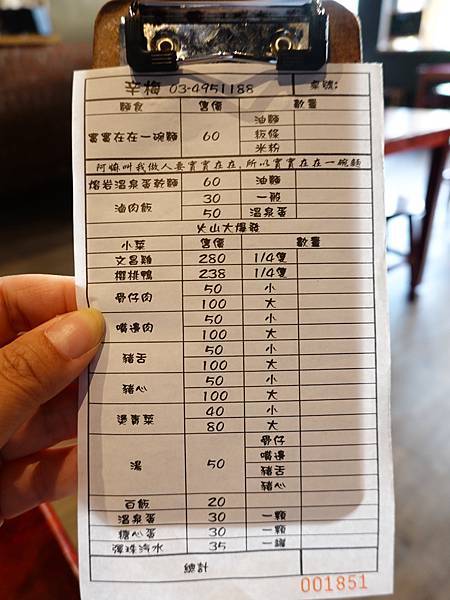 辛梅 03-4951188 桌號:
麵食 單價 數量
實實在在一碗麵 60 油麵
粄條
米粉
阿嬤叫我做人要實實在在,所以實實在在一碗麵
熔岩溫泉蛋乾麵 60 油麵
滷肉飯 30 一般
50 溫泉蛋
火山大爆發
小菜 單價 數量
文昌雞 280 1/4隻
櫻桃鴨 238 1/4隻
骨仔肉 50 小
100 大
嘴邊肉 50 小
100 大
豬舌 50 小
100 大
豬心 50 小
100 大
燙青菜 40 小
80 大
湯 50 骨仔
嘴邊
豬舌
豬心
白飯 20
溫泉蛋 30 一顆
糖心蛋 30 一顆
彈珠汽水 35 一罐
總計
001851